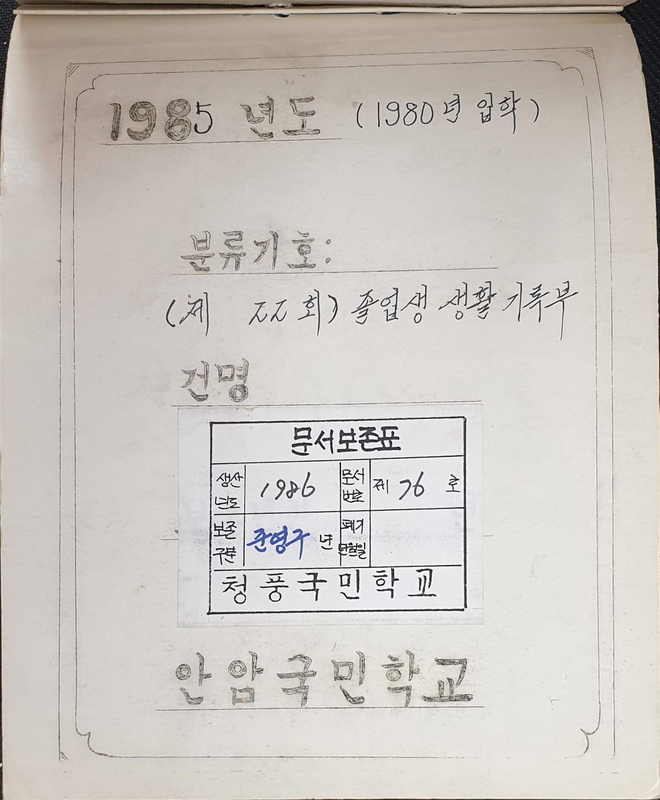 1985 년도 (1980년 입학)
분류기호:
(제 22회) 졸업생 생활기록부
건명
문서보존표
생산년도 1986 문서번호 제 76 호
보존구분 준영구 년 폐기
청풍국민학교
안암국민학교